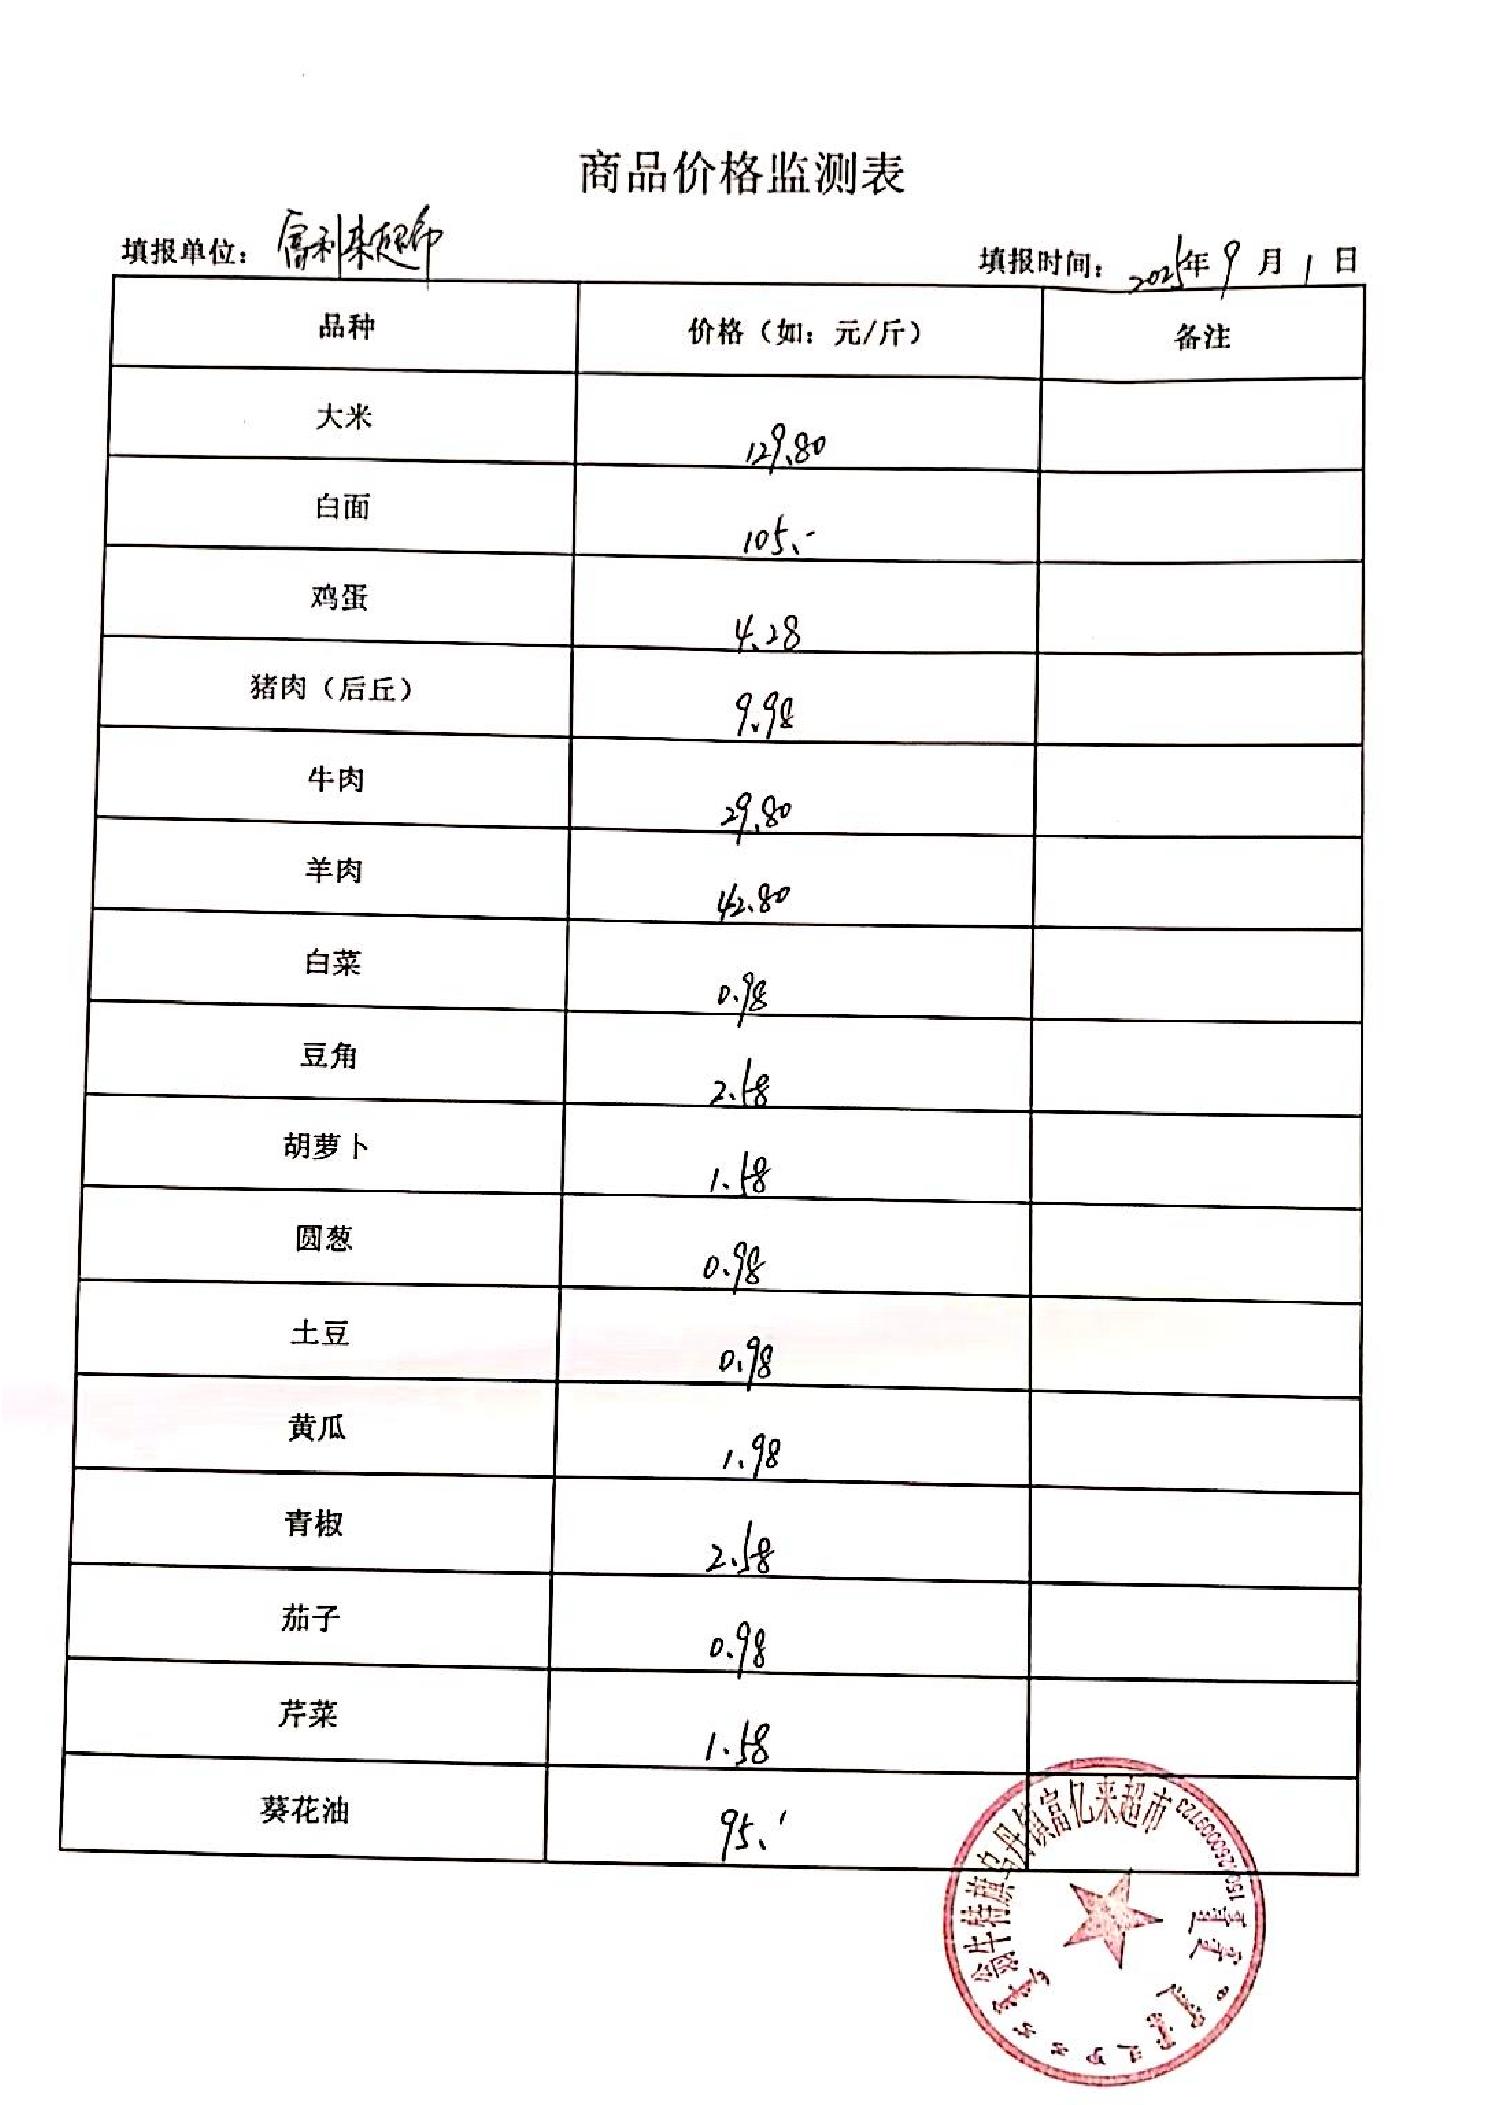 商品价格监测表
填报单位：富利来超市 填报时间：2025年9月1日
品种 价格（如：元/斤） 备注
大米 129.80
白面 105.-
鸡蛋 4.28
猪肉（后丘） 9.98
牛肉 29.80
羊肉 42.80
白菜 0.98
豆角 2.58
胡萝卜 1.58
圆葱 0.98
土豆 0.98
黄瓜 1.98
青椒 2.58
茄子 0.98
芹菜 1.58
葵花油 95.
翁牛特旗乌丹镇富亿来超市